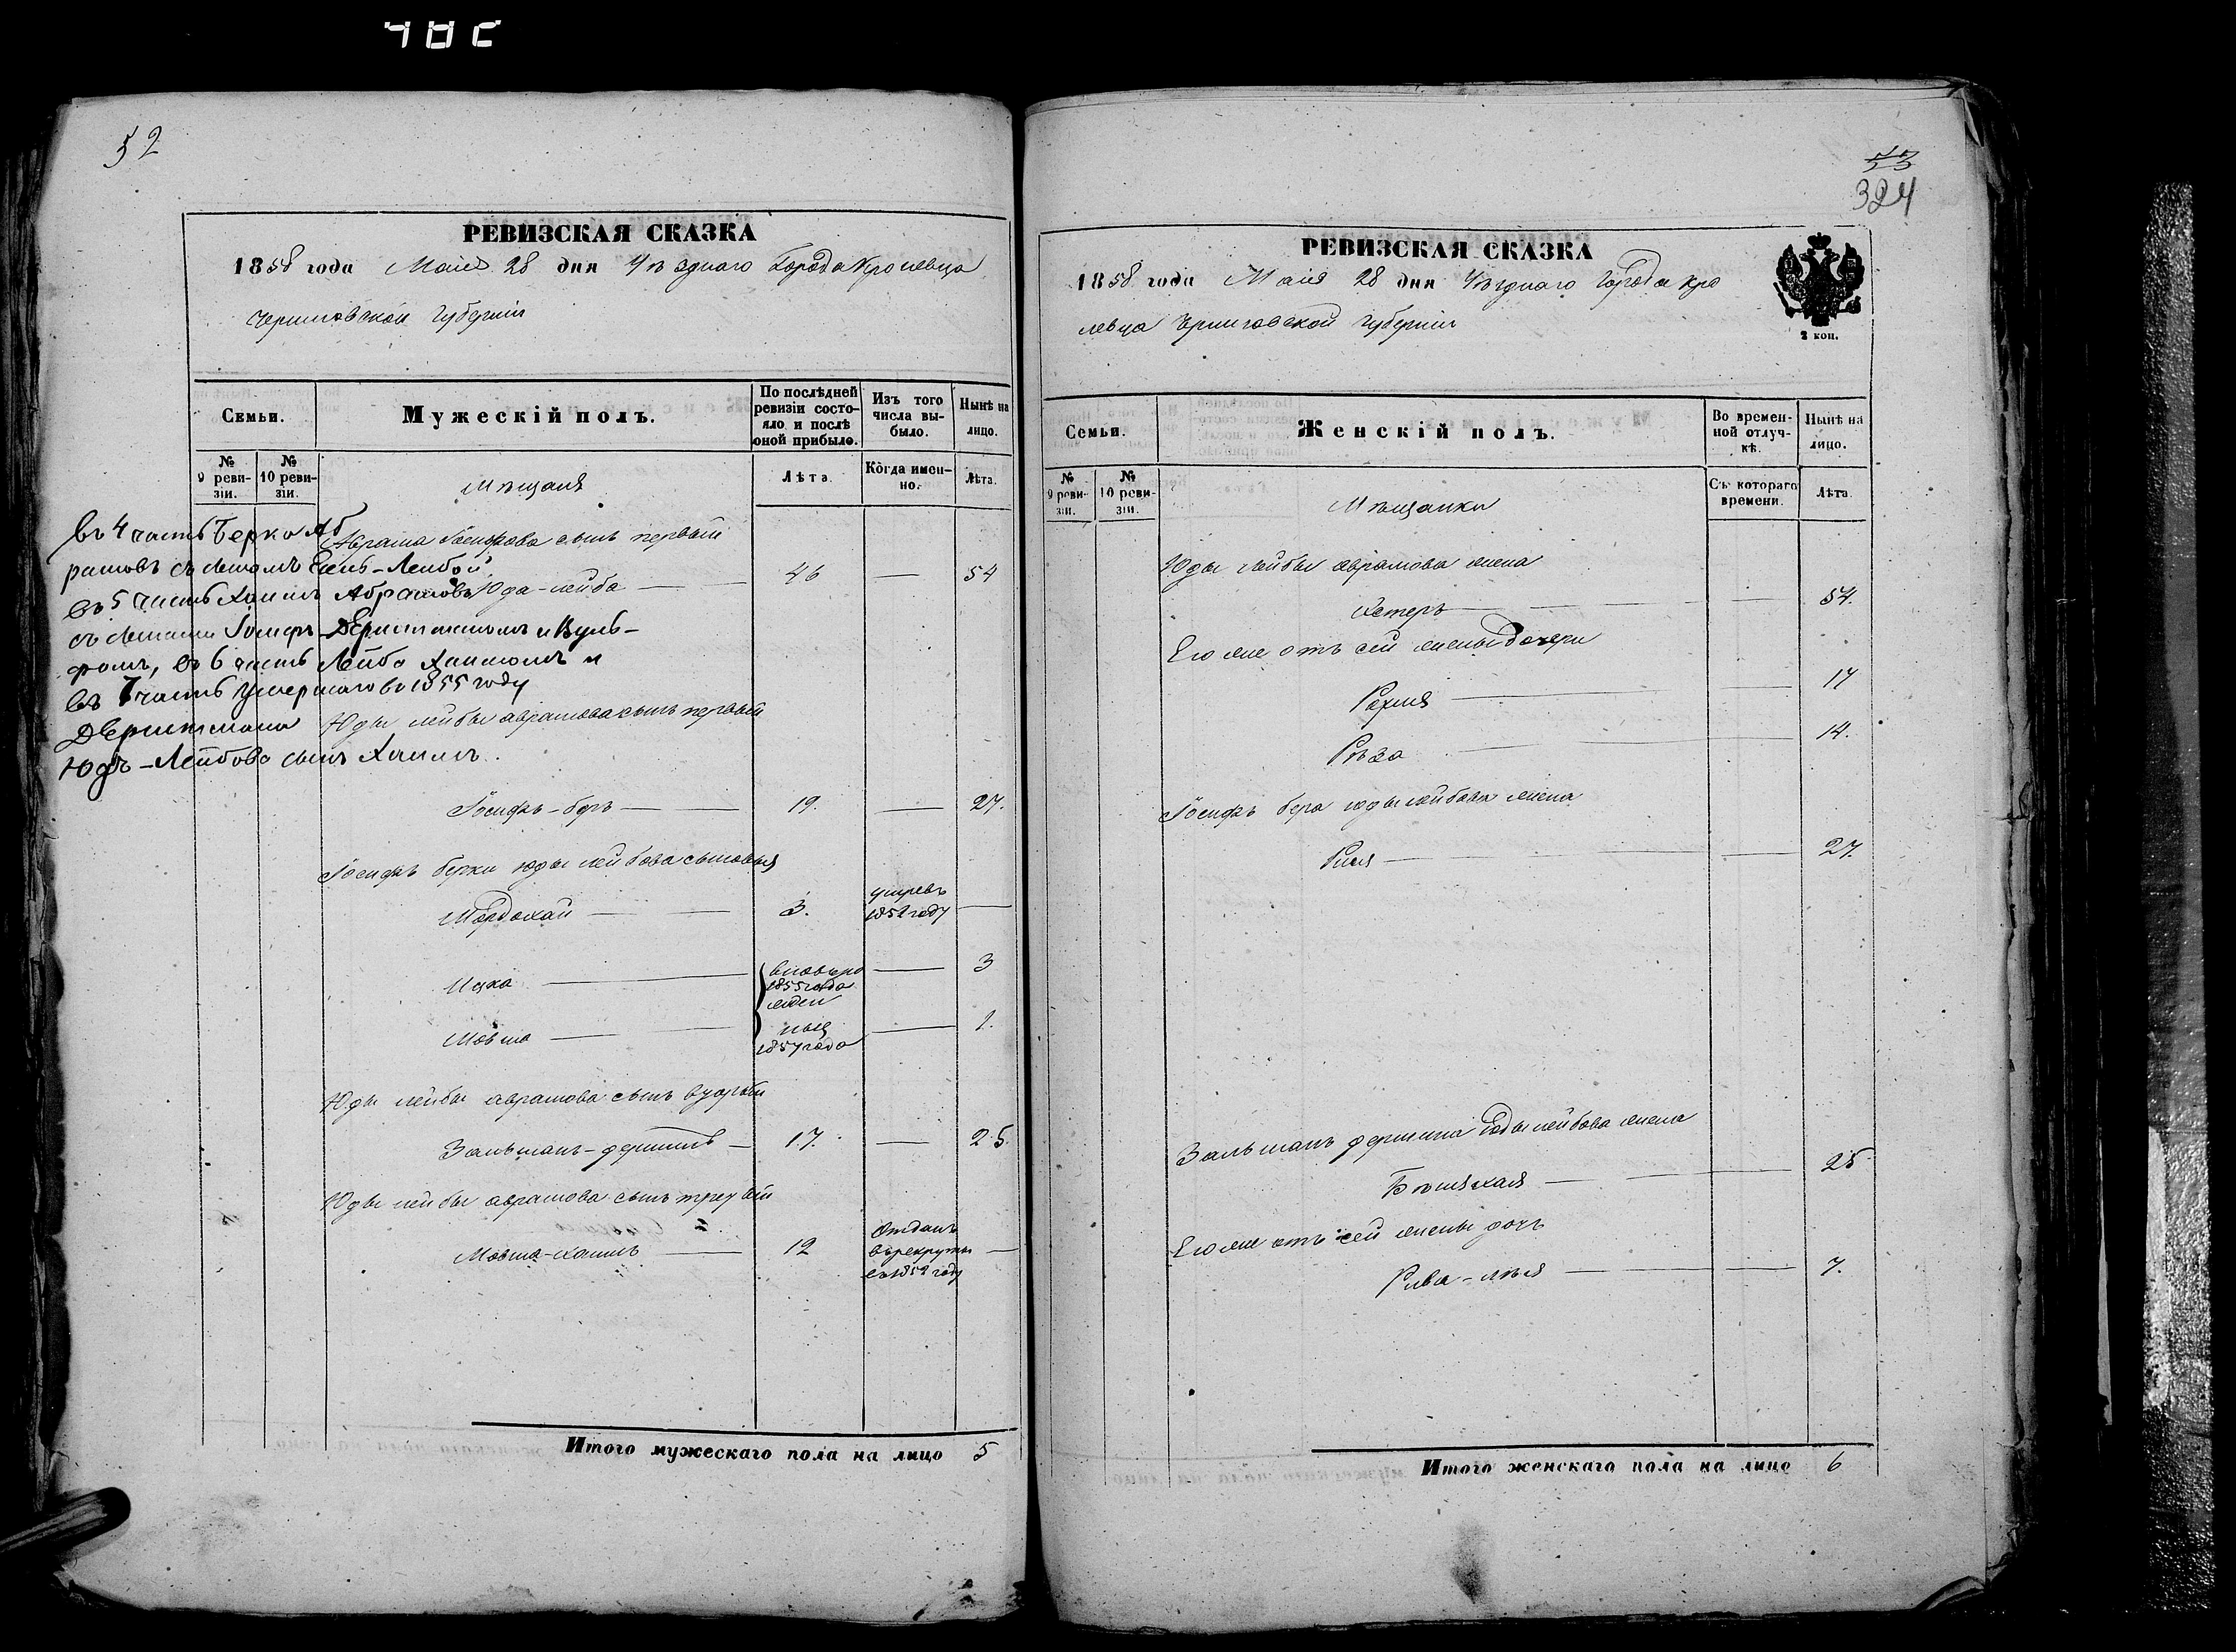 52
РЕВИЗСКАЯ СКАЗКА
1858 года Маія 28 дня Уѣзднаго Города Кролевца
Черниговской Губерніи
Семьи.
Мужескій полъ.
По послѣдней ревизіи состояло и послѣ оной прибыло.
Изъ того числа выбыло.
Нынѣ на лицо.
№ 9 ревизіи.
№ 10 ревизіи.
Мѣщаня
Лѣта.
Когда именно.
Лѣта.
въ 4 часть Берко Аб
рамовъ съ сыномъ -Лейбой
въ 5 часть Хаимъ Абрамовъ
съ сынами Іосифъ- и Вуль-
фомъ, въ 6 часть Лейба Хаимомъ и
въ 7 часть умершаго въ 1855 году
Юдъ-Лейбова сынъ Хаимъ.
Аврама Іосифова сынъ первый
Юда-лейба 46 — 54
Юды лейбы аврамова сынъ первый
Іосифъ-беръ 19. — 27.
Іосифъ берки юды лейбова сыновья
Мордохай 3. умревъ 1852 году —
Ицка вновьро 1855 года — 3
жден
Мовша ныя 1857 года — 1.
Юды лейбы аврамова сынъ вуорый
Зальманъ- 17. — 25.
Юды лейбы аврамова сынъ
Мовша-хаимъ 12 Отданъ въ рекруты въ 1852 году —
Итого мужескаго пола на лицо 5
53
324
РЕВИЗСКАЯ СКАЗКА
1858 года Маія 28 дня Уѣзднаго Города Кро
левца Черниговской Губерніи
2 коп.
Семьи.
Женскій полъ.
Во временной отлучкѣ.
Нынѣ на лицо.
№ 9 ревизіи.
№ 10 ревизіи.
Мѣщанки
Съ котораго времени.
Лѣта.
Юды лейбы аврамова жена
Естеръ — 54.
Его же отъ сей жены дочери
Рахля — 17
Рѣза — 14.
Іосифъ бера юды лейбова жена
27.
Зальманъ юды лейбова жена
25
Его же отъ сей жены дочь
Рива-лѣя — 7.
Итого женскаго пола на лицо 6